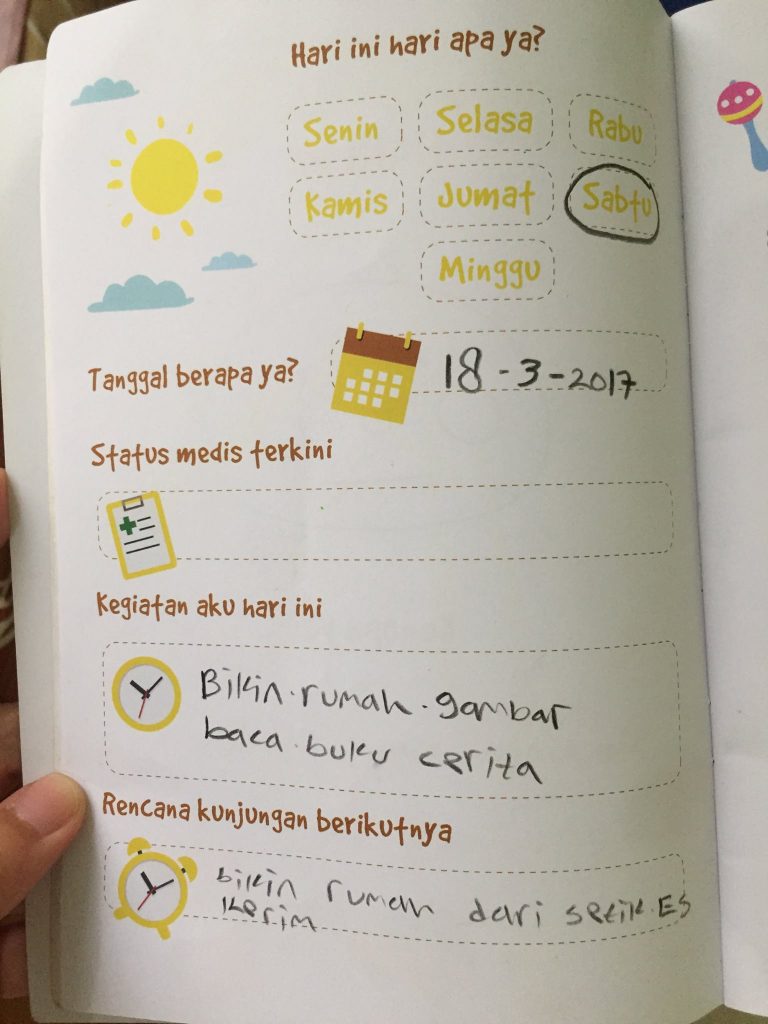 Hari ini hari apa ya?
Senin Selasa Rabu
Kamis Jumat Sabtu
Minggu
Tanggal berapa ya? 18-3-2017
Status medis terkini
Kegiatan aku hari ini
Bikin.rumah.gambar
baca.buku cerita
Rencana kunjungan berikutnya
bikin rumah dari setik.ES
kerim